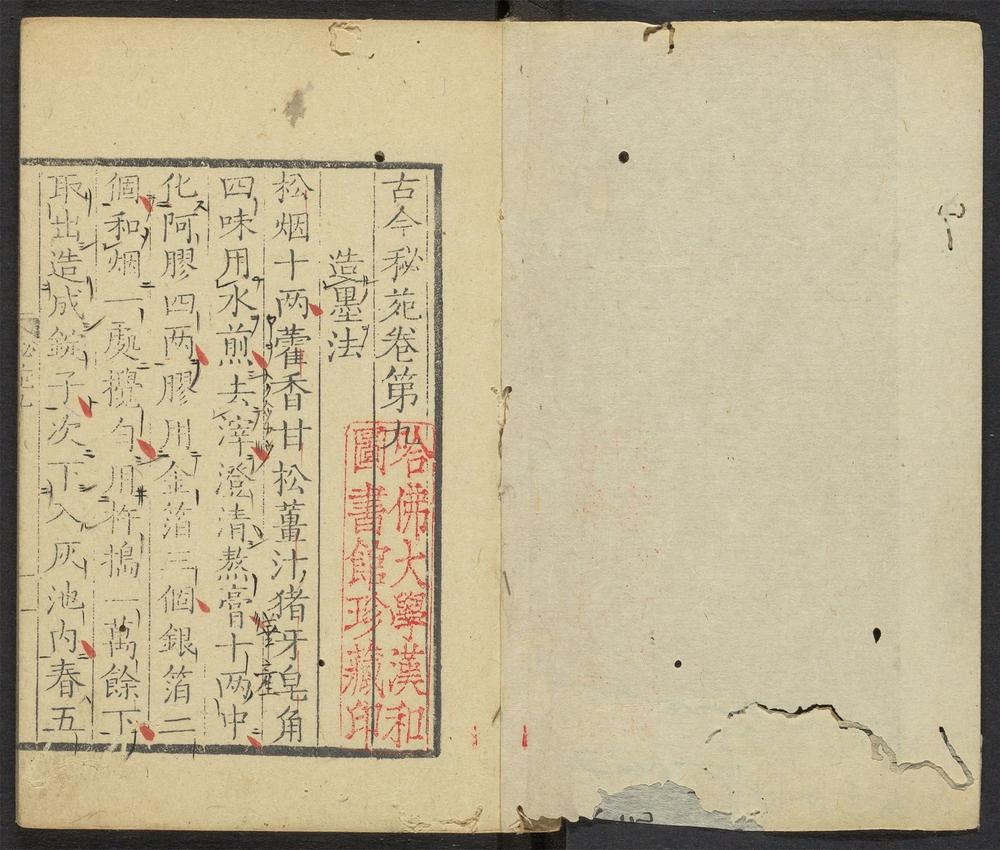 古今秘苑卷第九
造墨法
松烟十两藿香甘松薑汁猪牙皂角
四味用水煎去滓澄清熬膏十两中
化阿膠四两膠用金箔三個銀箔二
個和烟一處攪匀用杵搗一萬餘下
取出造成錠子次下入灰池内春五
哈佛大學漢和
圖書館珍藏印